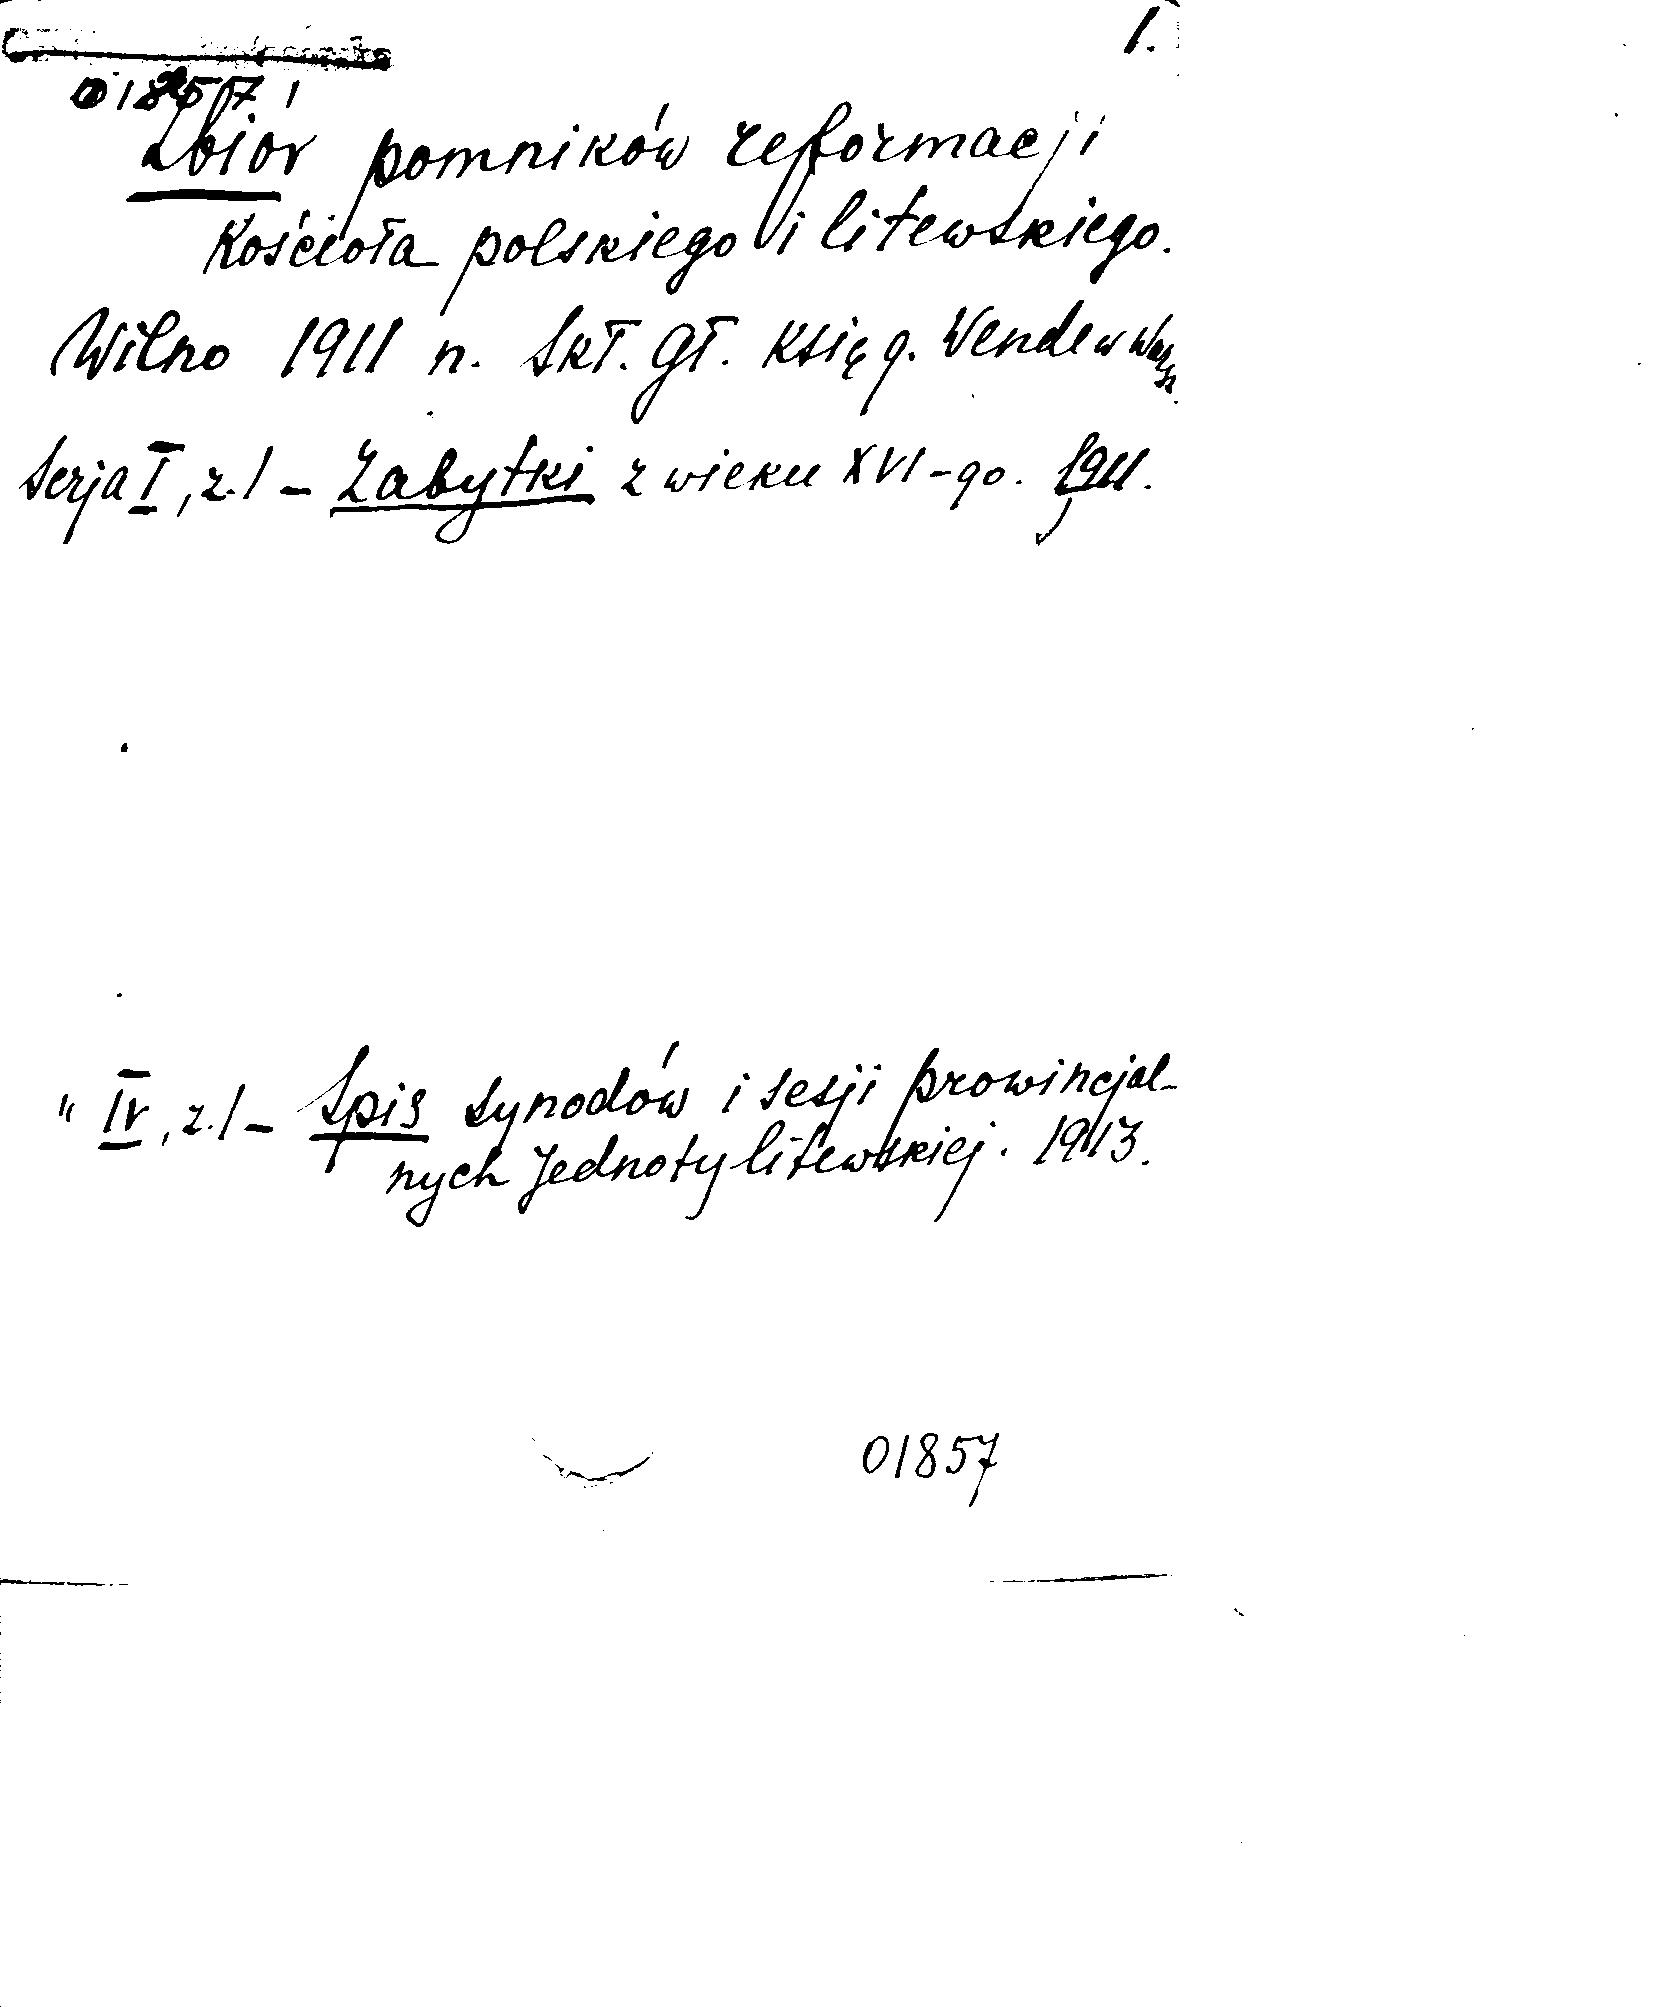 1.
01857
Zbiór pomników reformacji
Kościoła polskiego i litewskiego.
Wilno 1911 n. Skł. Gł. Księg. Wende w Warsz.
Serja I, z.1 – Zabytki z wieku XVI-go. 1911.
" IV, z.1 – Spis synodów i sesji prowincjal-
nych Jednoty litewskiej. 1913.
01857